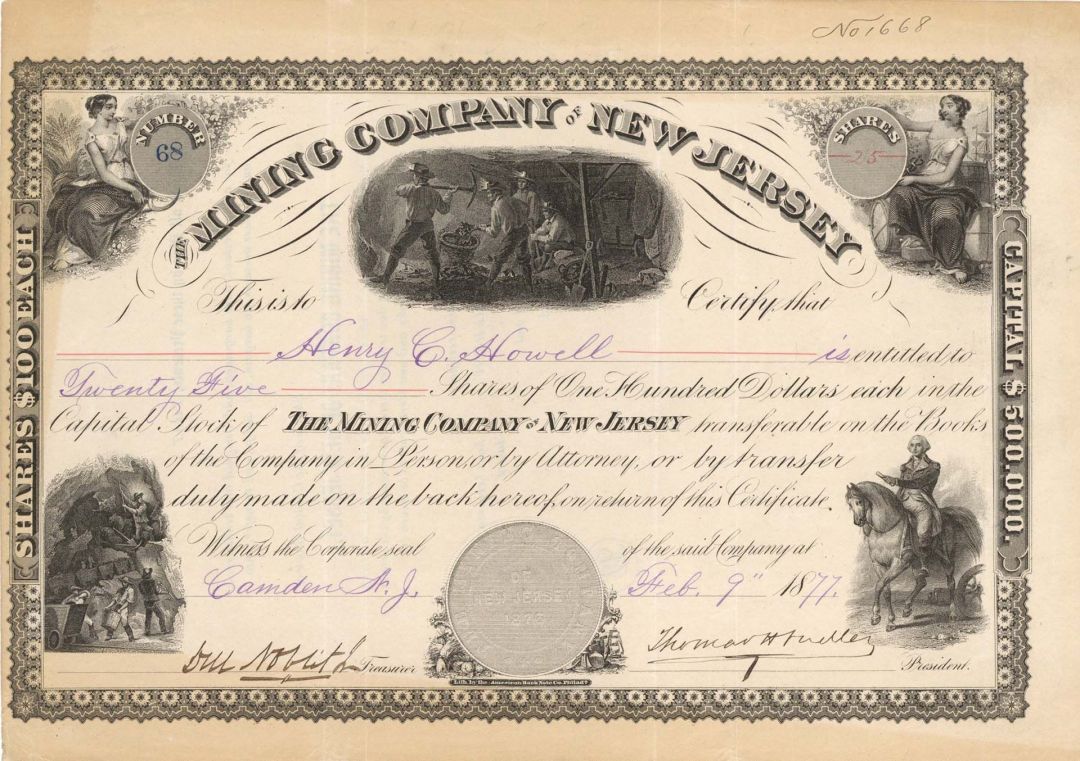 No 1668
THE MINING COMPANY OF NEW JERSEY
NUMBER
68
SHARES
25
SHARES $100 EACH
CAPITAL $500,000.
This is to Certify, that
Henry C. Howell is entitled to
Twenty Five Shares of One Hundred Dollars each in the
Capital Stock of THE MINING COMPANY OF NEW JERSEY transferable on the Books
of the Company in Person, or by Attorney, or by transfer
duly made on the back hereof, on return of this Certificate.
Witness the Corporate seal of the said Company at
Camden N. J. Feb. 9" 1877.
NEW JERSEY
Treasurer
Thomas H Dudley President.
Lith. by the American Bank Note Co. Philada